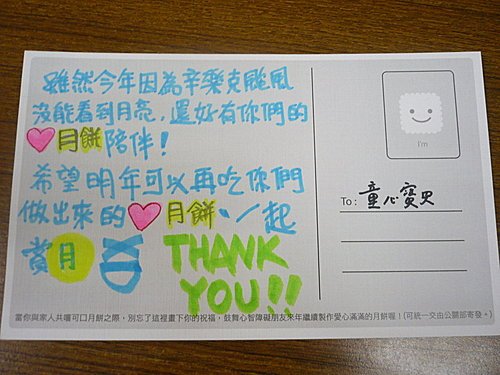 雖然今年因為辛樂克颱風
沒能看到月亮，還好有你們的
月餅陪伴！
希望明年可以再吃你們
做出來的月餅、一起
賞月
THANK
YOU!!
I'm
To: 童心寶貝
當你與家人共嚐可口月餅之際，別忘了這裡畫下你的祝福，鼓舞心智障礙朋友來年繼續製作愛心滿滿的月餅喔！(可統一交由公關部寄發。)